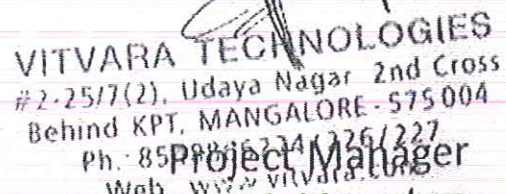 VITVARA TECHNOLOGIES
#2-25/7(2), Udaya Nagar 2nd Cross
Behind KPT, MANGALORE - 575 004
Ph.: 226/227
Project Manager
Web